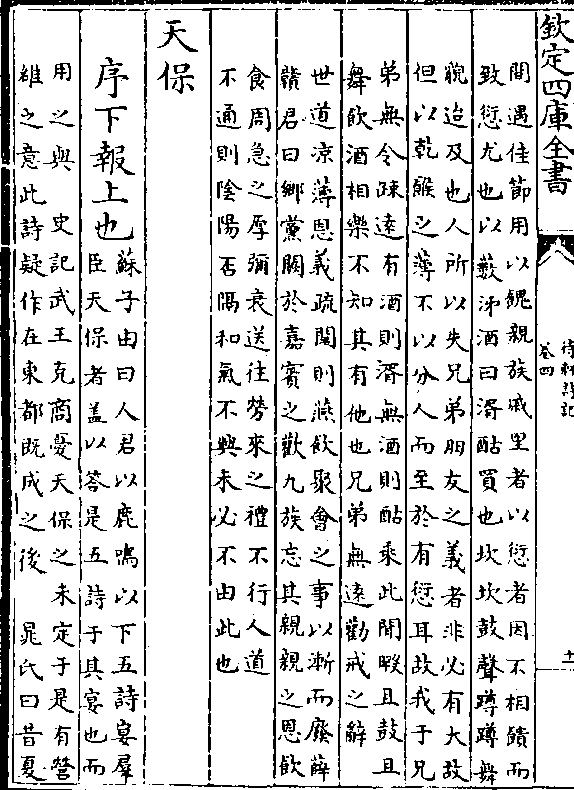 欽定四庫全書
卷四
間遇佳節用以餽親族戚里者以愆者因不相饋而
致愆尤也以藪泲酒曰湑酤買也坎坎鼓聲蹲蹲舞
貌迨及也人所以失兄弟朋友之義者非必有大故
但以乾餱之薄不以分人而至於有愆耳故我于兄
弟無令疎遠有酒則湑無酒則酤乘此閒暇且鼓且
舞飲酒相樂不知其有他也兄弟無遠勸戒之辭
世道凉薄恩義疏闊則燕飲聚會之事以漸而廢薛
贊君曰鄉黨闕於嘉賓之歡九族忘其親親之恩飲
食周急之厚彌衰送往勞來之禮不行人道
不通則陰陽否隔和氣不興未必不由此也
天保
序下報上也
蘇子由曰人君以鹿鳴以下五詩宴羣
臣天保者盖以答是五詩于其宴也而
用之與 史記武王克商憂天保之未定于是有營
雒之意此詩疑作在東都既成之後 晁氏曰昔夏